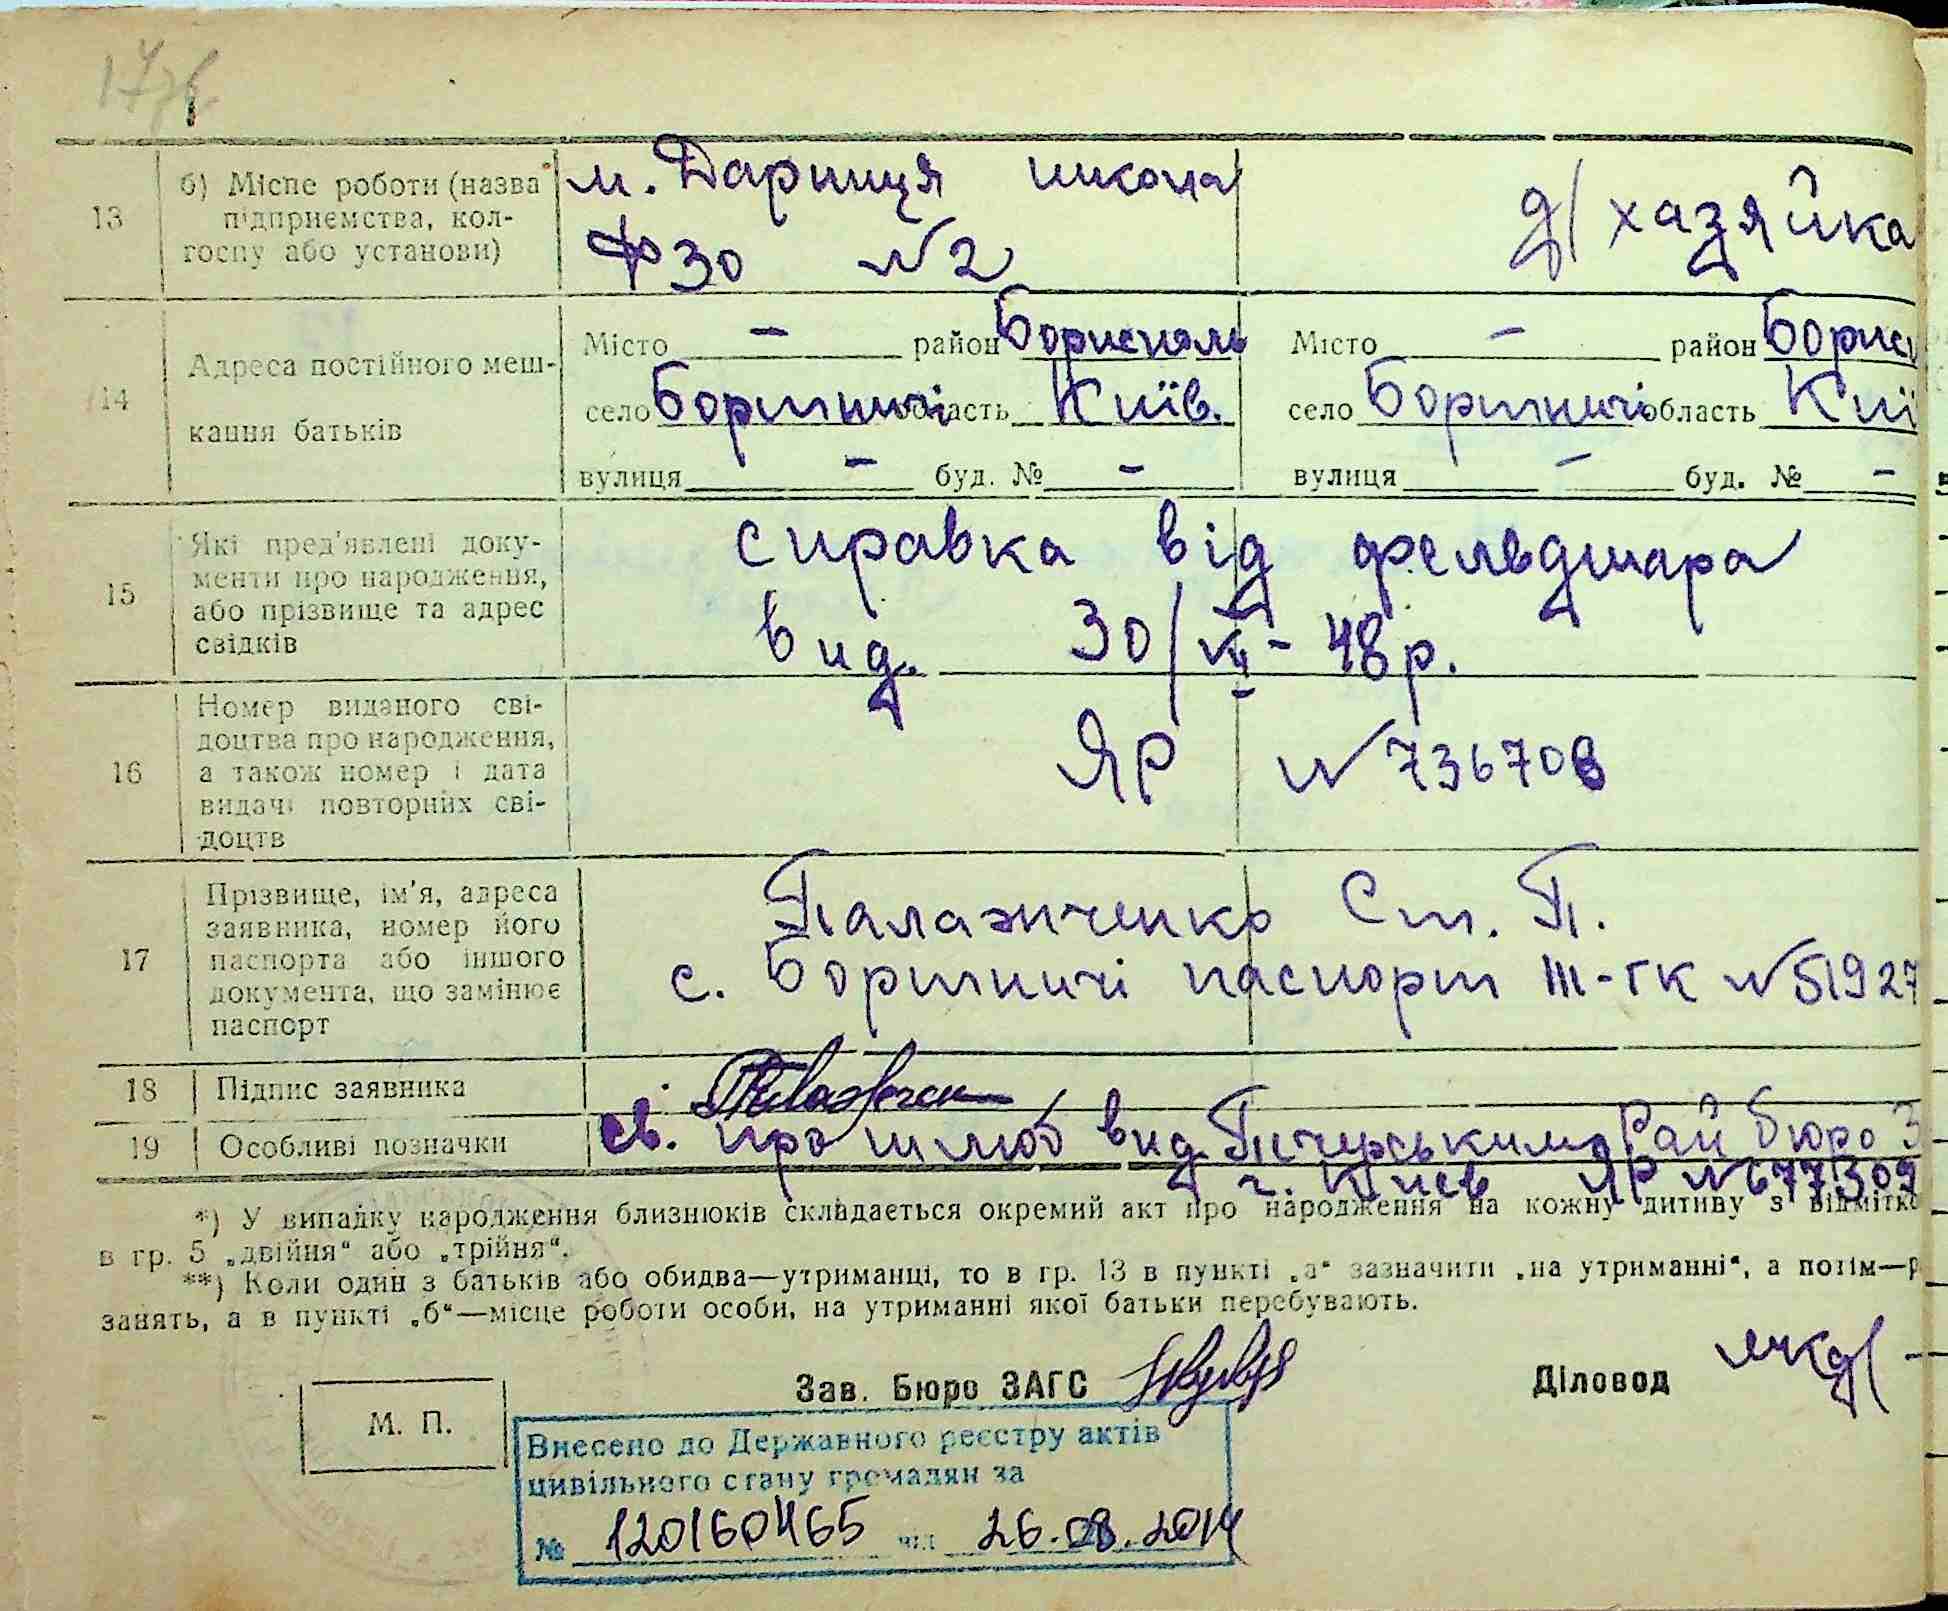 17зв.
13
б) Місце роботи (назва
підприємства, кол-
госпу або установи)
м. Дарниця школа
ФЗО №2
д/хазяйка
14
Адреса постійного меш-
кання батьків
Місто — район Борисполь
село Бортничі область Київ.
вулиця — буд. № —
Місто — район Борисп
село Бортничі область Киї
вулиця — буд. № —
15
Які пред'явлені доку-
менти про народження,
або прізвище та адрес
свідків
справка від фельдшара
вид. 30/VII-48р.
16
Номер виданого сві-
доцтва про народження,
а також номер і дата
видачі повторних сві-
доцтв
ЯР №736708
17
Прізвище, ім'я, адреса
заявника, номер його
паспорта або іншого
документа, що замінює
паспорт
Палажченко Ст. П.
с. Бортничі паспорт III-ГК №51927
18
Підпис заявника
19
Особливі позначки
Св. про шлюб вид. Печерським Рай бюро З
г. Киев ЯР №677309
*) У випадку народження близнюків складається окремий акт про народження на кожну дитину з відмітко
в гр. 5 „двійня“ або „трійня“.
**) Коли один з батьків або обидва—утриманці, то в гр. 13 в пункті „а“ зазначити „на утриманні“, а потім—р
занять, а в пункті „б“—місце роботи особи, на утриманні якої батьки перебувають.
Зав. Бюро ЗАГС
Діловод
М. П.
Внесено до Державного реєстру актів
цивільного стану громадян за
№ 120160465 від 26.08.2014